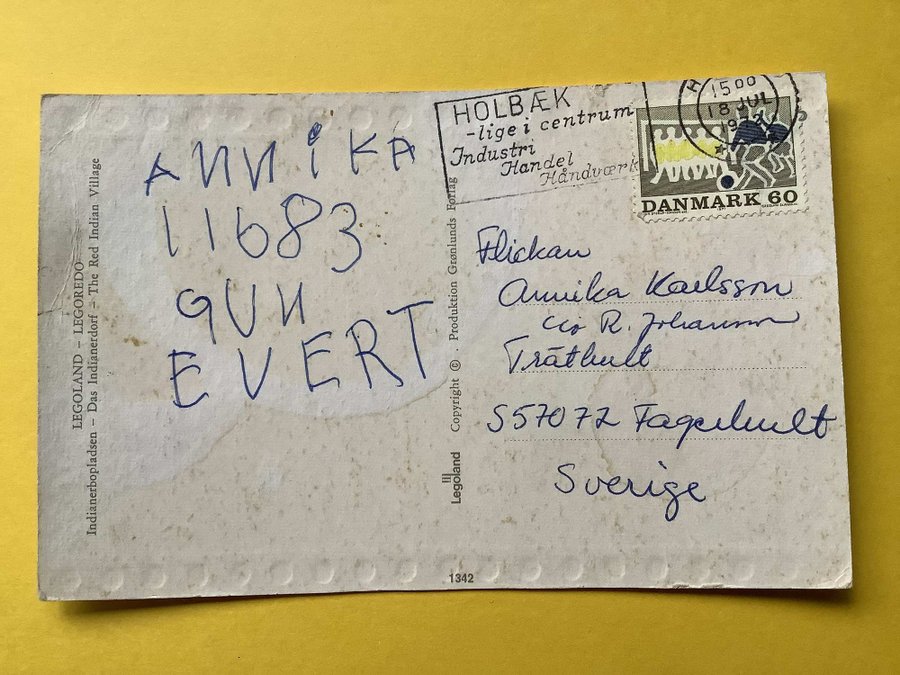 LEGOLAND – LEGOREDO
Indianerbopladsen – Das Indianerdorf – The Red Indian Village
ANNiKA
11683
GUN
EVERT
Legoland Copyright © . Produktion Grønlunds Forlag
1342
HOLBÆK
-lige i centrum
Industri
Handel
Håndværk
1500
18 JUL
DANMARK 60
Flickan
Annika Karlsson
c/o R. Johansson
Tråthult
S57072 Fagerhult
Sverige